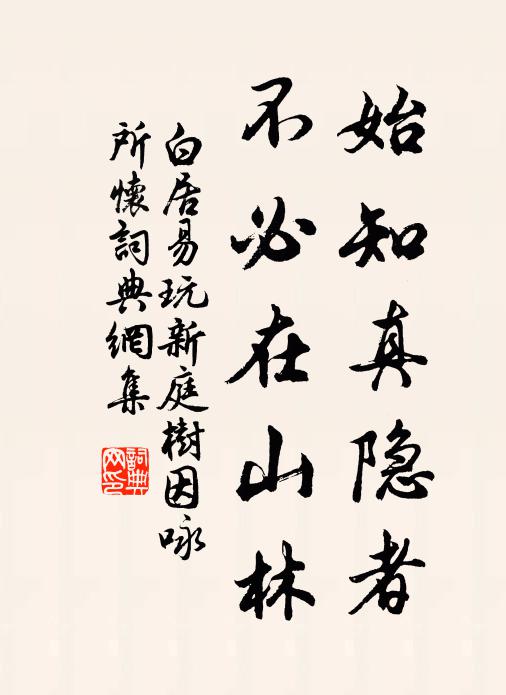 始知真隐者
不必在山林
白居易玩新庭樹因咏
所懷詞典網集
詞典
网印